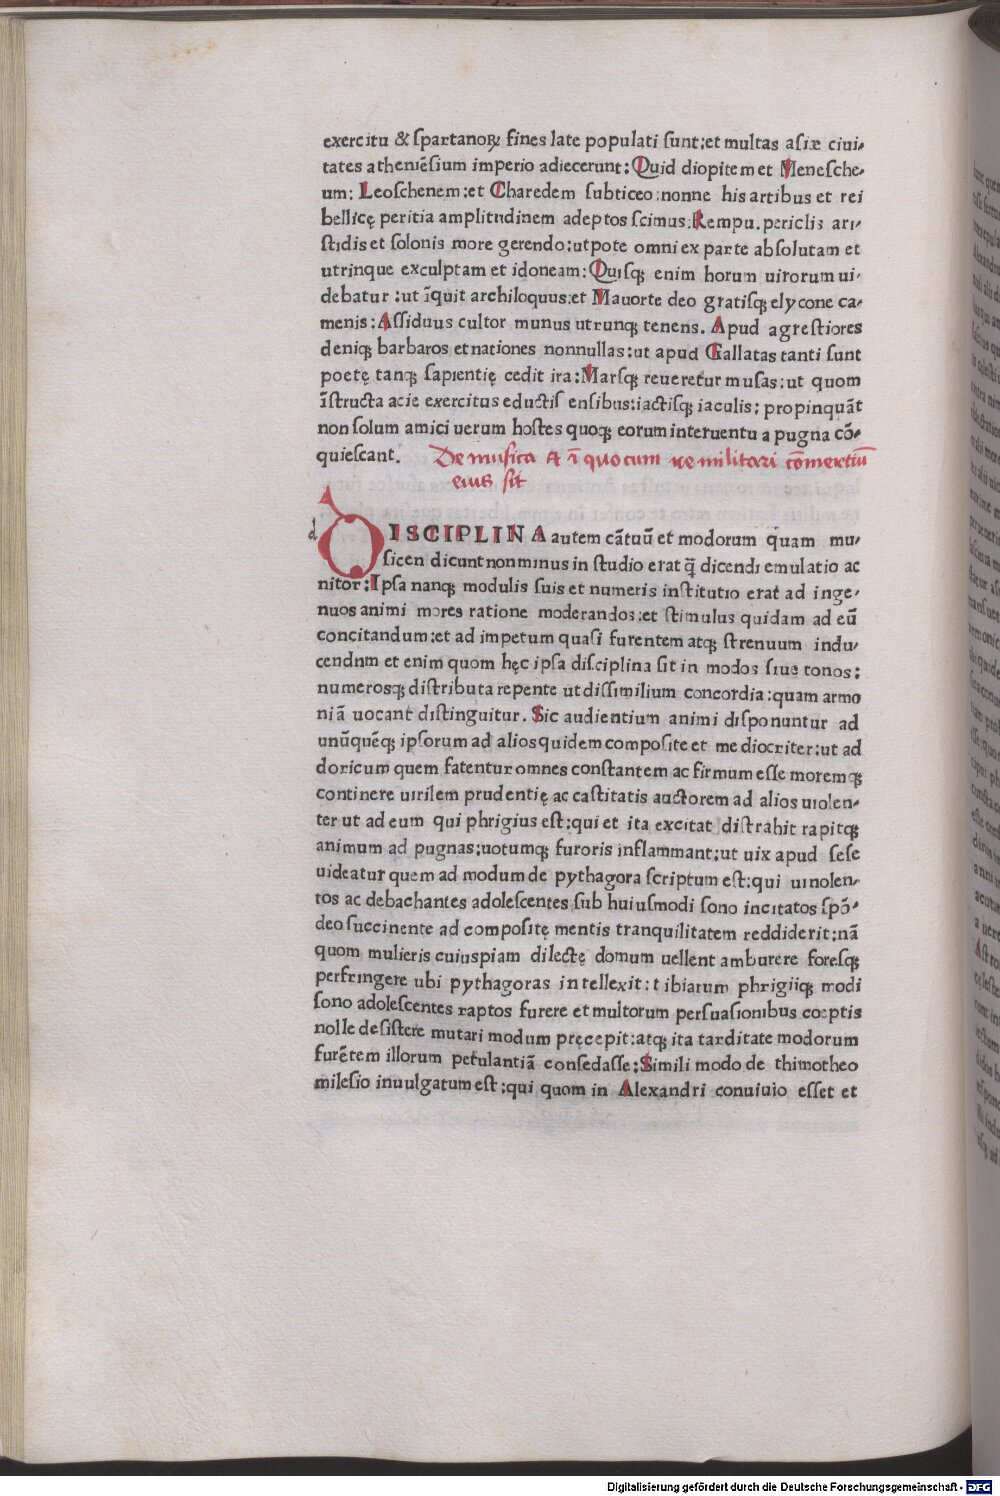 exercitu & ſpartanoꝝ fines late populati ſunt:et multas aſiæ ciui-
tates atheniēſium imperio adiecerunt: Quid diopitem et Meneſche-
um: Leoſchenem:et Charedem ſubticeo:nonne his artibus et rei
bellicę peritia amplitudinem adeptos ſcimus:Rempu.periclis ari-
ſtidis et ſolonis more gerendo:utpote omni ex parte abſolutam et
utrinque exculptam et idoneam: Quiſqꝫ enim horum uirorum ui-
debatur :ut īquit archiloquus:et Mauorte deo gratiſqꝫ elycone ca-
menis: Aſſiduus cultor munus utrunqꝫ tenens. Apud agreſtiores
deniqꝫ barbaros et nationes nonnullas:ut apud Gallatas tanti ſunt
poetę tanqꝫ ſapientię cedit ira:Marſqꝫ reueretur muſas:ut quom
īſtructa acie exercitus eductiſ enſibus:iactiſqꝫ iaculis: propinquāt
non ſolum amici uerum hoſtes quoqꝫ eorum interuentu a pugna cō-
quieſcant. De muſica et ī quo cum re militari cōmertiū
eius ſit
d
DISCIPLINA autem cātuū et modorum quam mu-
ſicen dicunt non minus in ſtudio erat q̄ dicendi emulatio ac
nitor:Ipſa nanqꝫ modulis ſuis et numeris inſtitutio erat ad inge-
nuos animi mores ratione moderandos:et ſtimulus quidam ad eū
concitandum:et ad impetum quaſi furentem atqꝫ ſtrenuum indu-
cendnm et enim quom hęc ipſa diſciplina ſit in modos ſiue tonos:
numeroſqꝫ diſtributa repente ut diſſimilium concordia:quam armo
niā uocant diſtinguitur. Sic audientium animi diſponuntur ad
unūquēqꝫ ipſorum ad alios quidem compoſite et mediocriter:ut ad
doricum quem fatentur omnes conſtantem ac firmum eſſe moremqꝫ
continere uirilem prudentię ac caſtitatis auctorem ad alios uiolen-
ter ut ad eum qui phrigius eſt:qui et ita excitat diſtrahit rapitqꝫ
animum ad pugnas:uotumqꝫ furoris inflammant:ut uix apud ſeſe
uideatur quem ad modum de pythagora ſcriptum eſt:qui uinolen-
tos ac debachantes adoleſcentes ſub huiuſmodi ſono incitatos ſpō-
deo ſuccinente ad compoſitę mentis tranquilitatem reddiderit:nā
quom mulieris cuiuſpiam dilectę domum uellent amburere foreſqꝫ
perfringere ubi pythagoras intellexit:tibiarum phrigiiqꝫ modi
ſono adoleſcentes raptos furere et multorum perſuaſionibus coeptis
nolle deſiſtere mutari modum pręcepit:atqꝫ ita tarditate modorum
furētem illorum petulantiā conſedaſſe:Simili modo de thimotheo
mileſio inuulgatum eſt:qui quom in Alexandri conuiuio eſſet et
Digitalisierung gefördert durch die Deutsche Forschungsgemeinschaft - DFG